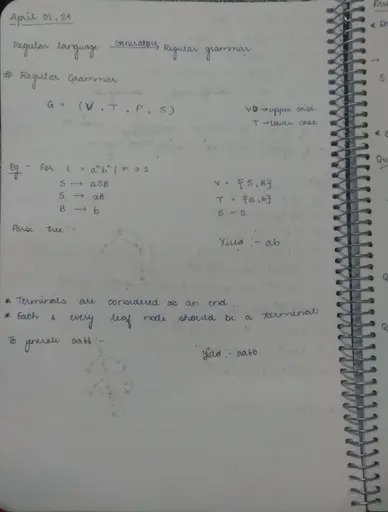 April 01, 24
Regular language generators Regular grammar
# Regular Grammar
G = (V, T, P, S)
V → upper case
T → lower case
Eg - For L = aⁿbⁿ | n ≥ 1
S → aSB
S → aB
B → b
V = {S, B}
T = {a, b}
S - S
Parse tree :-
Yield :- ab
* Terminals are considered as an end.
* Each & every leaf node should be a terminal.
To generate aabb :-
Yield :- aabb